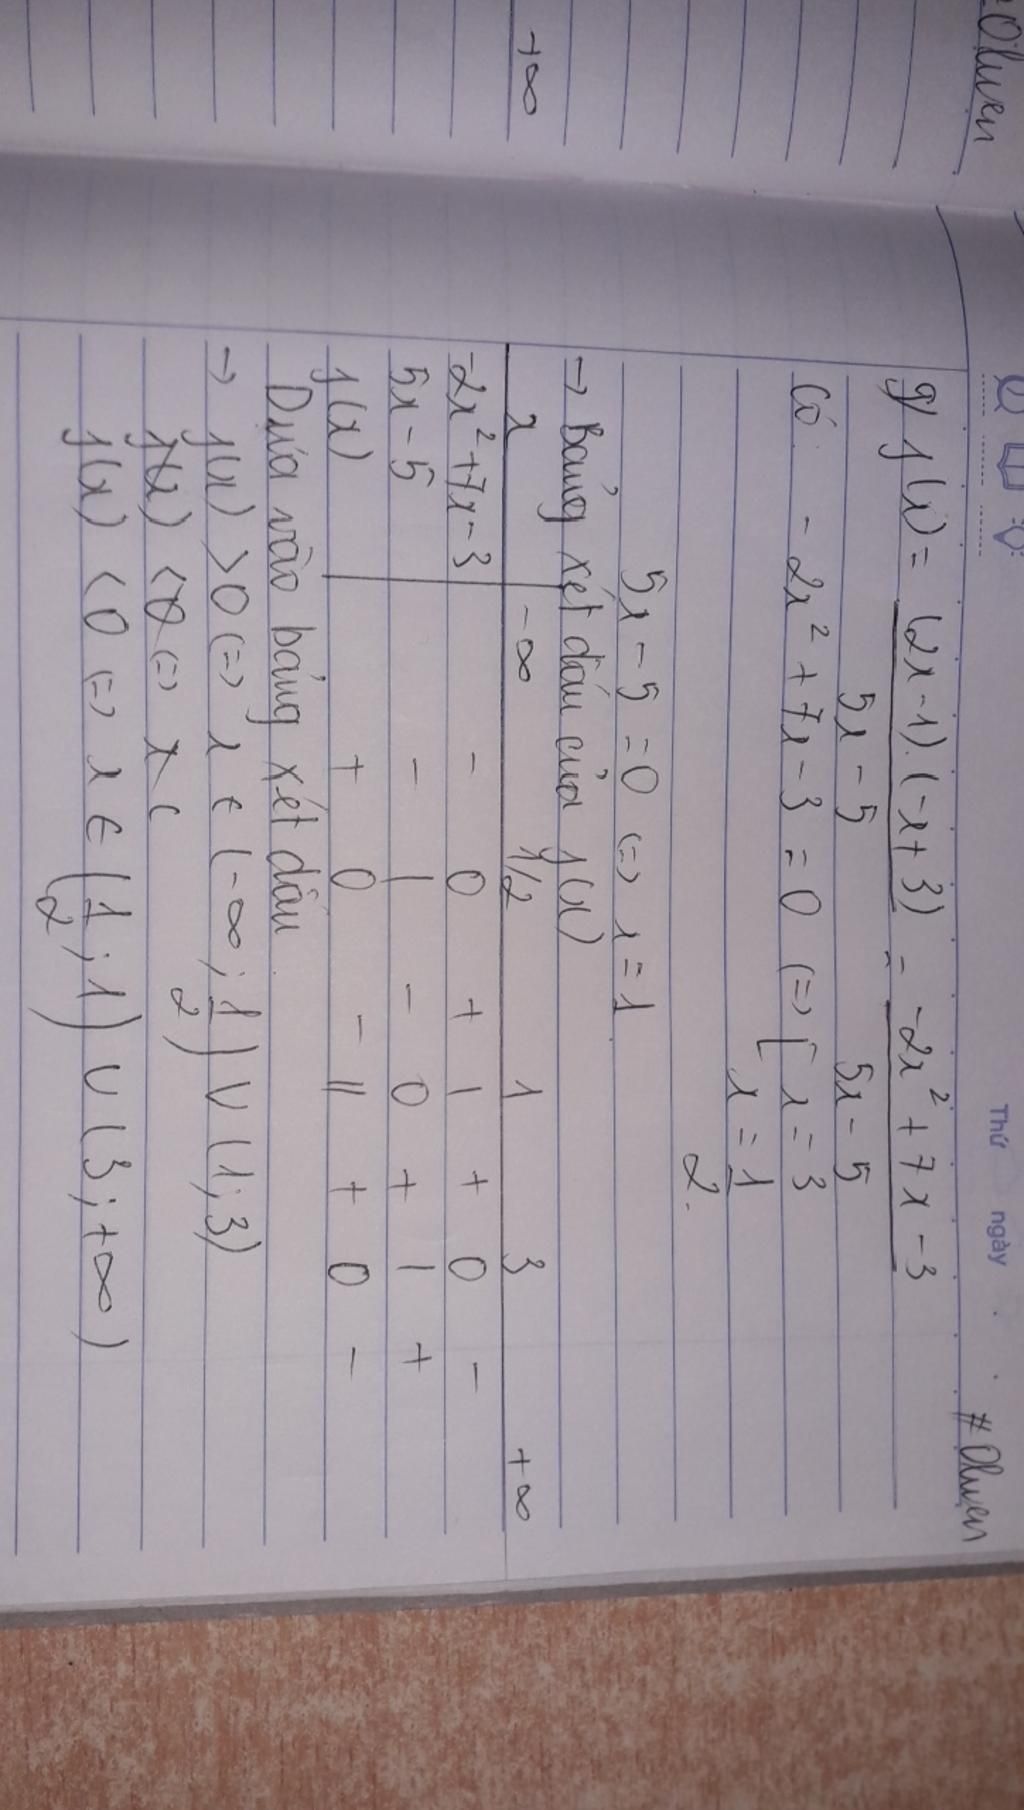 Oluven
+∞
Thứ ngày
# Oluven
g) f(x) = (2x-1).(-x+3) = -2x² + 7x - 3
5x - 5 5x - 5
Có: - 2x² + 7x - 3 = 0 (=) [ x = 3
x = 1
2.
5x - 5 = 0 (=) x = 1
→ Bảng xét dấu của f(x)
x -∞ 1/2 1 3 +∞
-2x² + 7x - 3 - 0 + | + 0 -
5x - 5 - | - 0 + | +
f(x) + 0 - || + 0 -
Dựa vào bảng xét dấu
→ f(x) > 0 (=) x ∈ (-∞; 1/2) ∪ (1; 3)
f(x) < 0 (=) x (
f(x) < 0 (=) x ∈ (1/2; 1) ∪ (3; +∞)